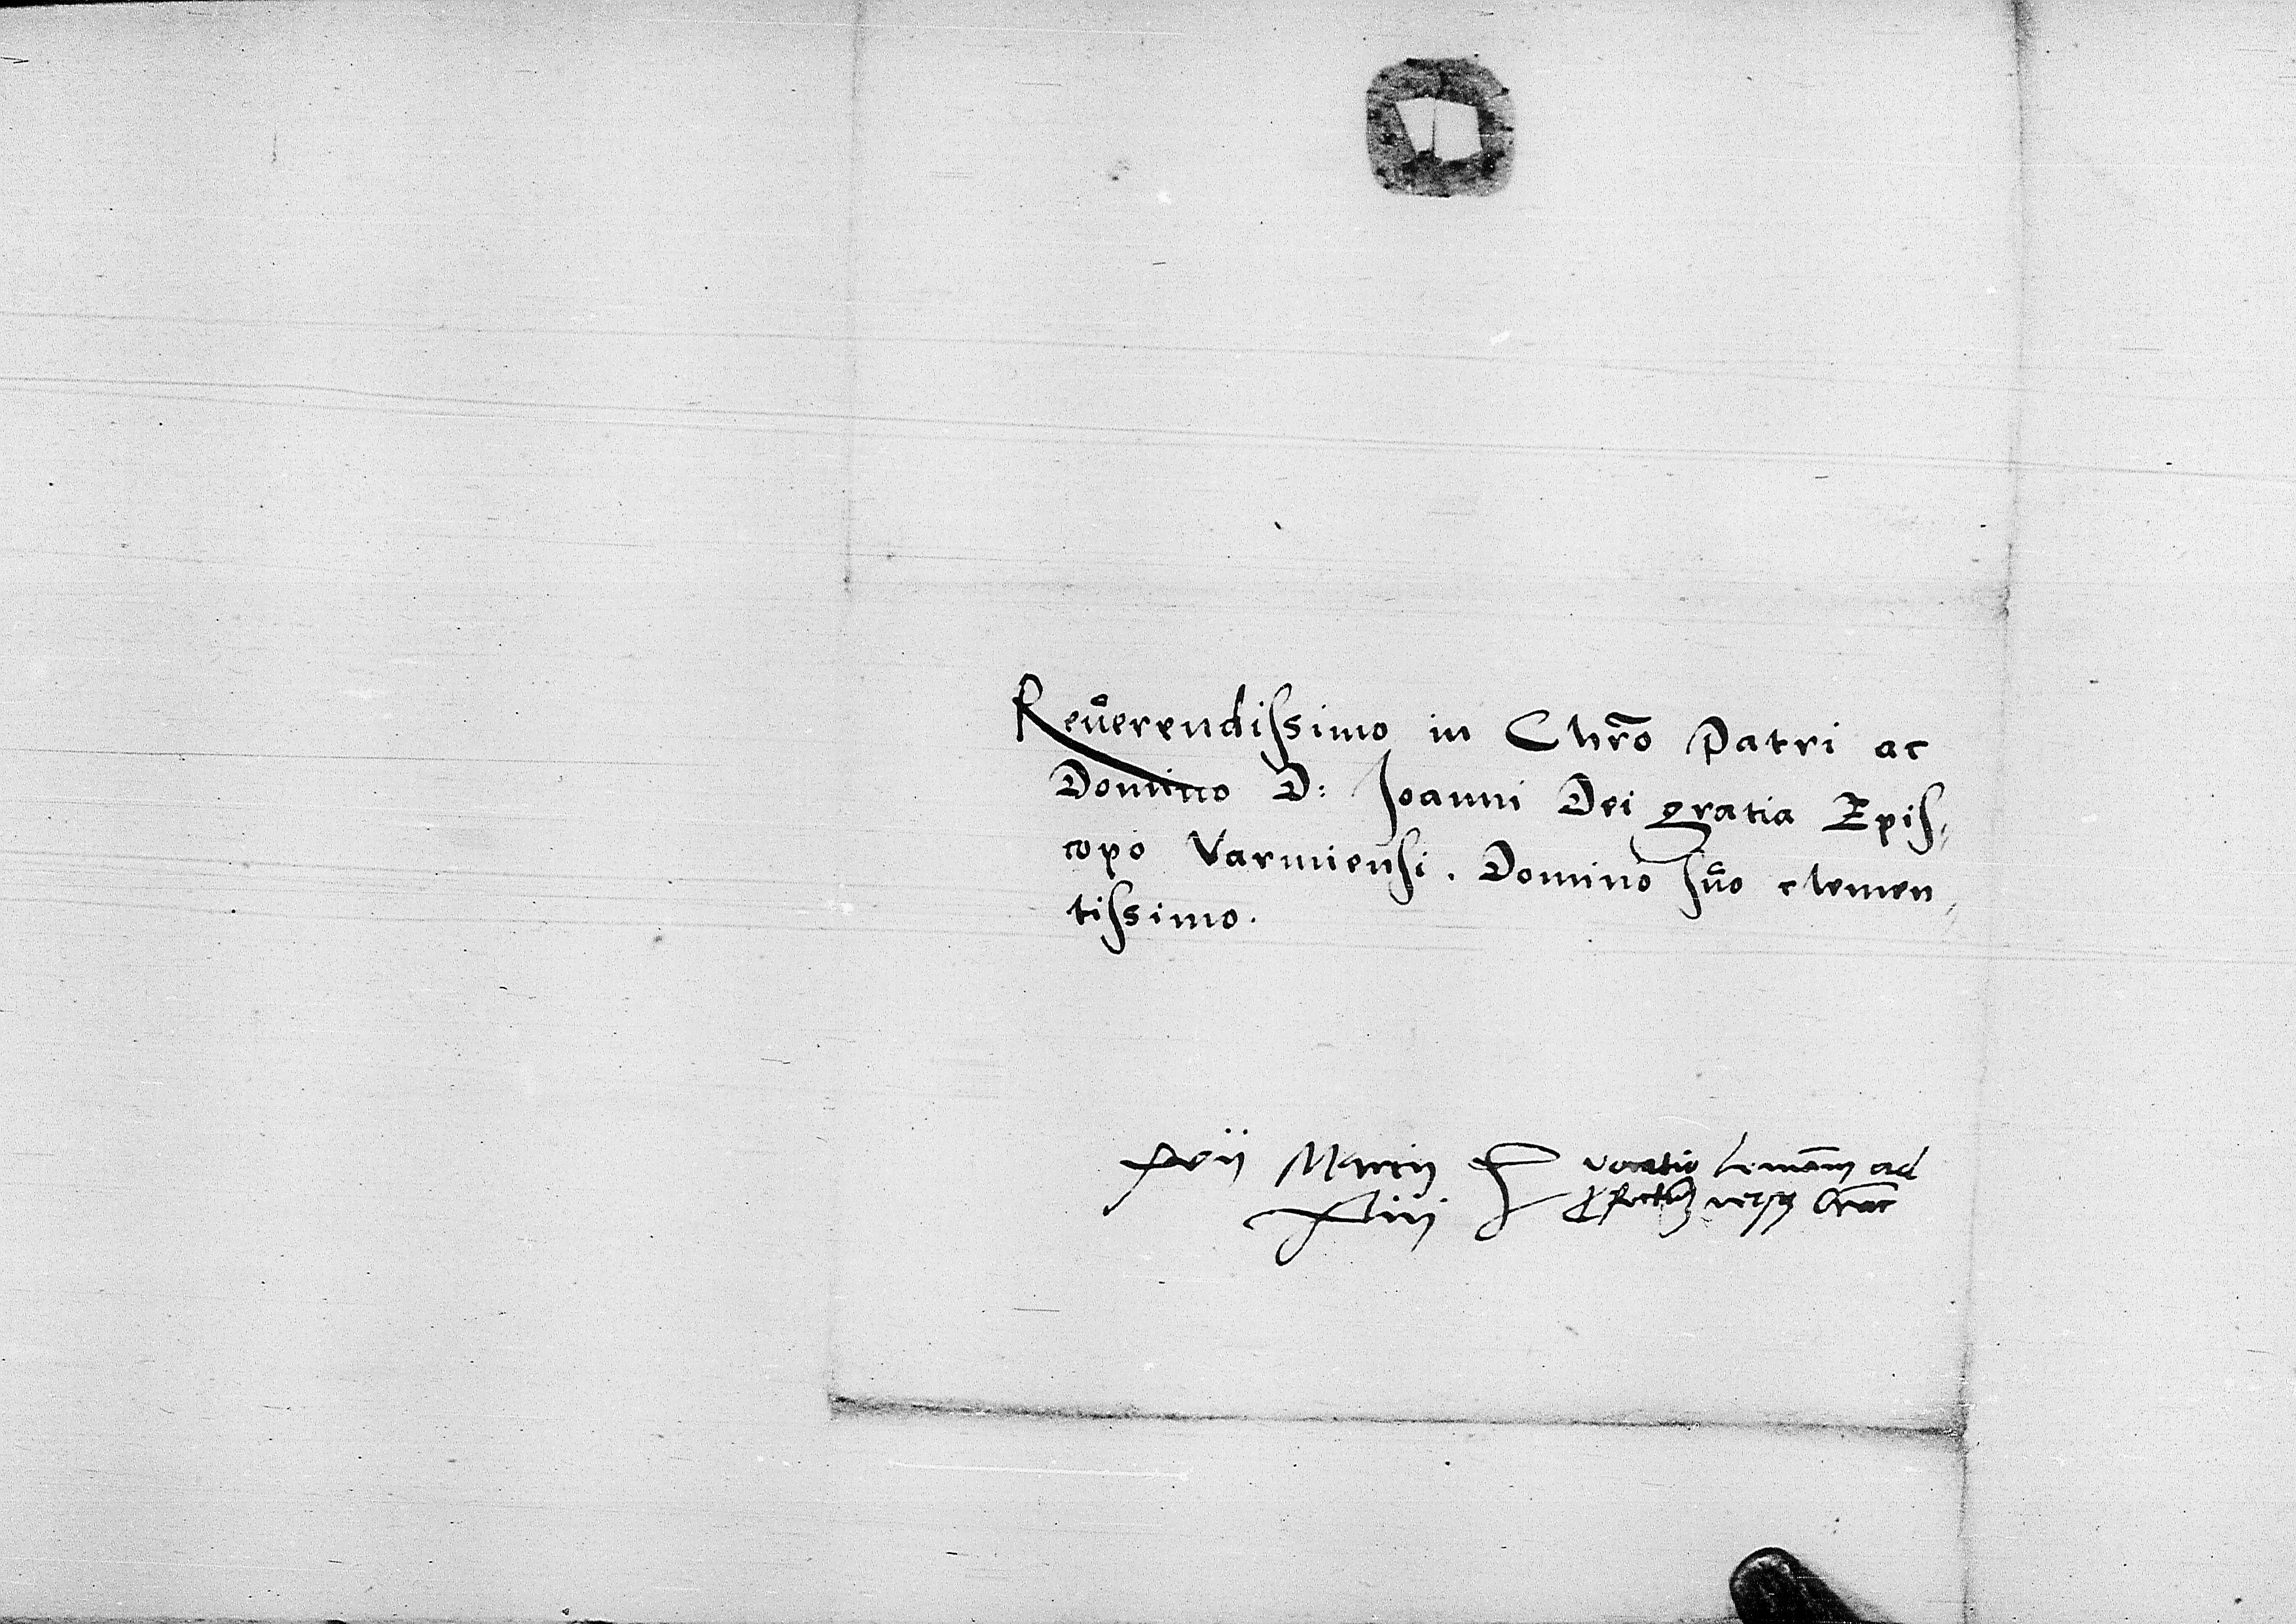 Reůerendiſsimo in Chr̄o Patri ac
Domino D: Joanni Dei gratia Epiſ,
copo Varmienſi. Domino ſůo clemen,
tiſsimo.
xvij Marcij vocatio ad
xliij